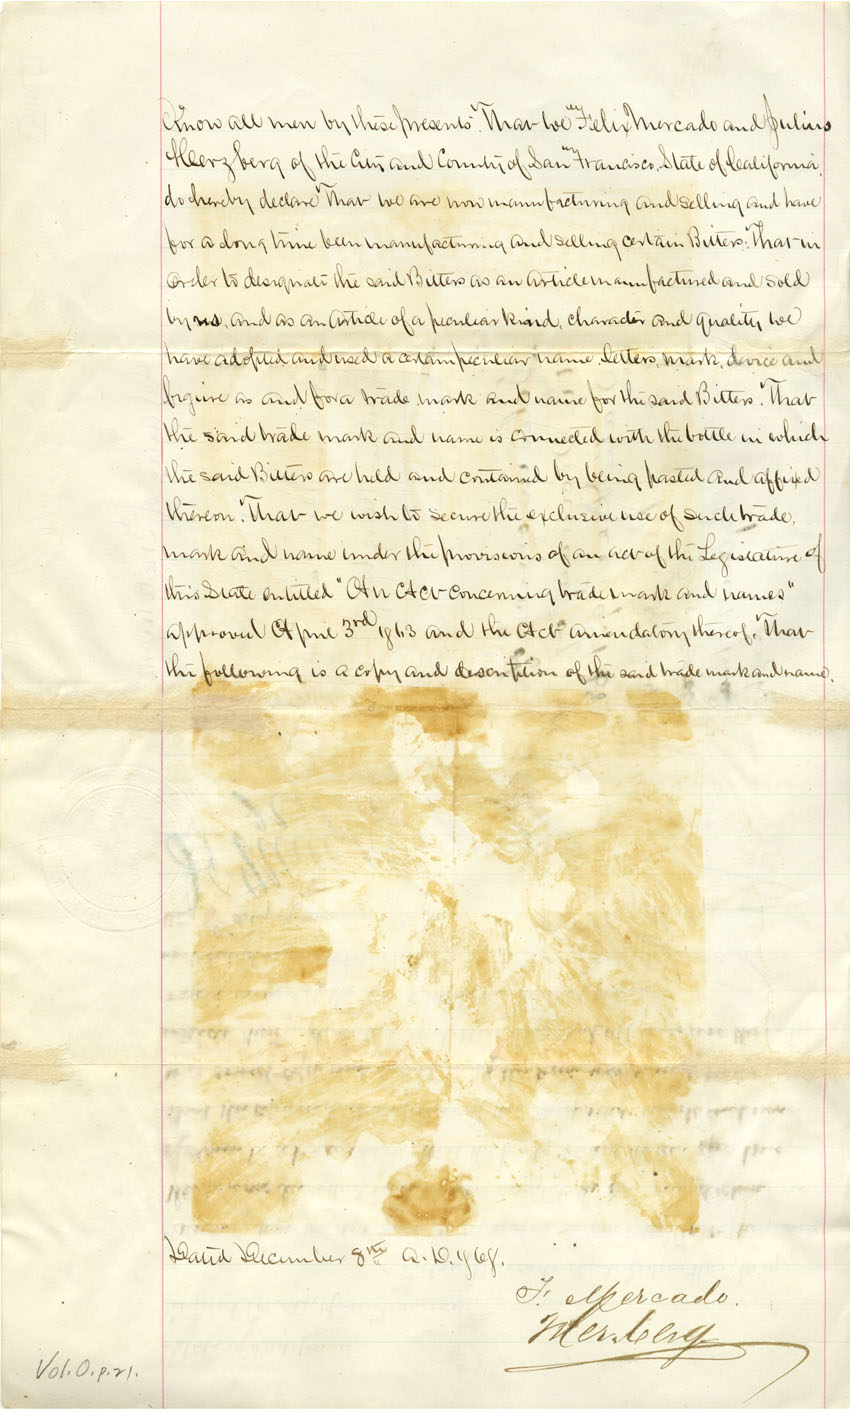 Know all men by these presents "That we "Felix Mercado and Julius
Herzberg of the City and County of San "Francisco, State of California,
do hereby declare "That we are now manufacturing and selling and have
for a long time been manufacturing and selling certain Bitters. "That in
order to designate the said Bitters as an article manufactured and sold
by us, and as an article of a peculiar kind, character and quality we
have adopted and used a certain peculiar name, letters, mark, device and
figure as and for a trade mark and name for the said Bitters. "That
the said trade mark and name is connected with the bottle in which
the said Bitters are held and contained by being pasted and affixed
thereon. "That we wish to secure the exclusive use of such trade,
mark and name under the provisions of an act of the Legislature of
this State entitled "An Act concerning trade mark and names"
approved April 3rd 1863 and the Act amendatory thereof. "That
the following is a copy and description of the said trade mark and name.
Dated December 8th A.D.
F. Mercado.
Herzberg
Vol. O. p. 21.